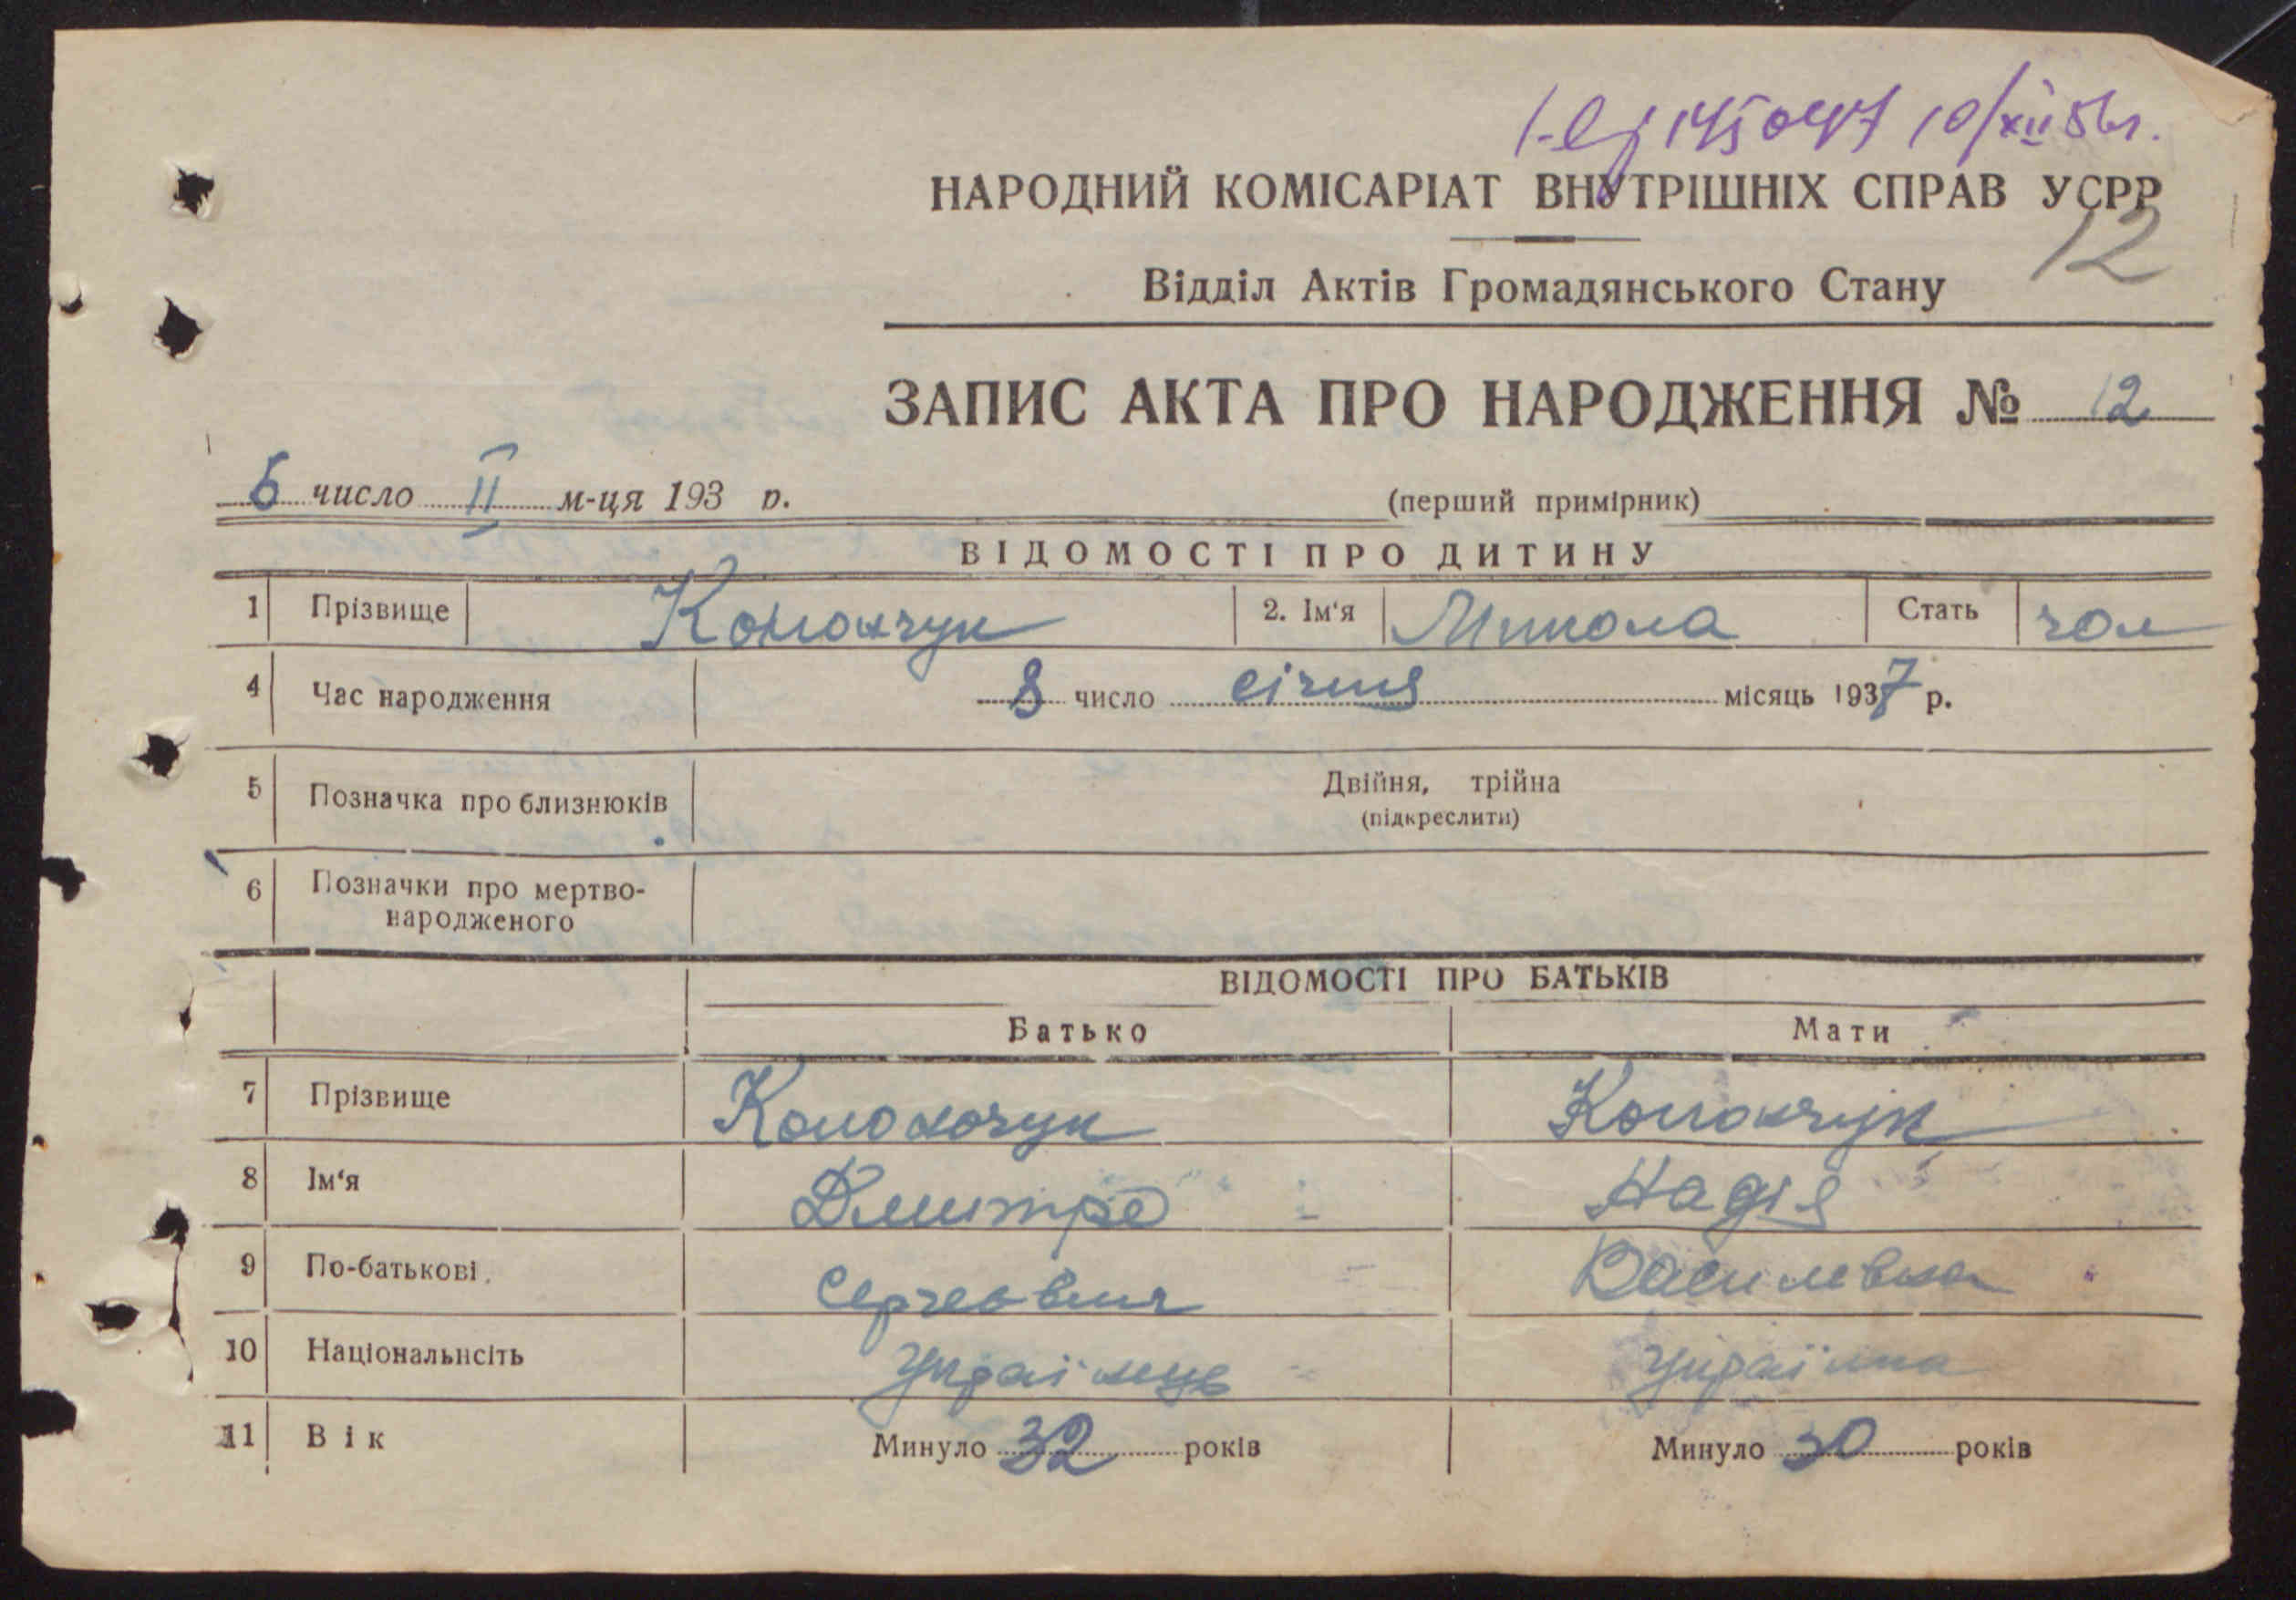 145047 10/XII 56 г.
НАРОДНИЙ КОМІСАРІАТ ВНУТРІШНІХ СПРАВ УСРР
12
Відділ Актів Громадянського Стану
ЗАПИС АКТА ПРО НАРОДЖЕННЯ № 12
6 число II м-ця 193 р.
(перший примірник)
ВІДОМОСТІ ПРО ДИТИНУ
1 Прізвище 2. Ім'я Микола Стать чол
4 Час народження 8 число січня місяць 1937 р.
5 Позначка про близнюків Двійня, трійна
(підкреслити)
6 Позначки про мертво-
народженого
ВІДОМОСТІ ПРО БАТЬКІВ
Батько Мати
7 Прізвище
8 Ім'я Дмитро Надія
9 По-батькові Василевна
10 Національнсіть Українець Українка
11 Вік Минуло 32 років Минуло 30 років